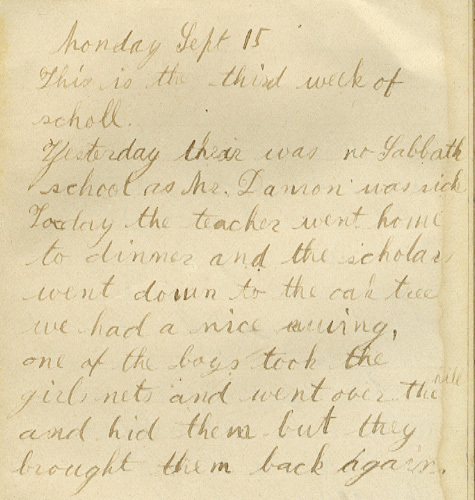 Monday Sept 15
This is the third week of
scholl.
Yesterday thair was no Sabbath
school as Mr. Damon was sick
Today the teacher went home
to dinner and the scholars
went down to the oak tree
we had a nice swing,
one of the boys took the
girls nets and went over the hill
and hid them but they
brought them back again.